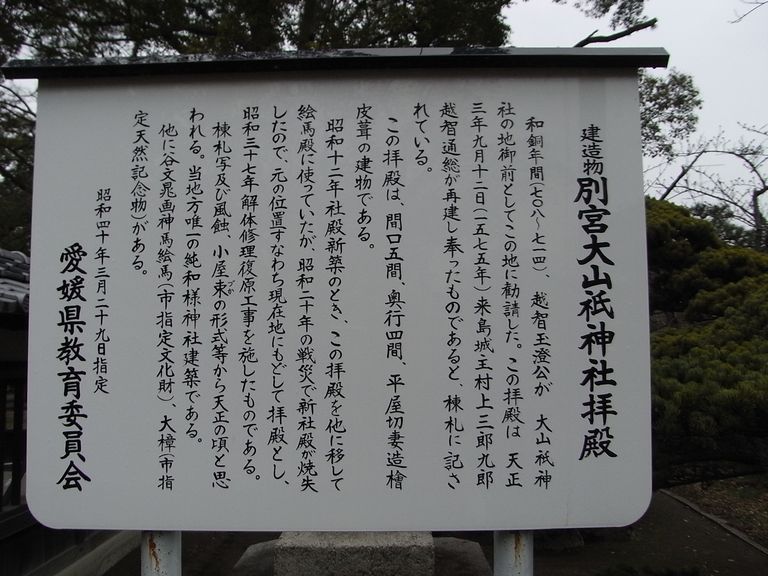 建造物 別宮大山祇神社拝殿
和銅年間(七〇八~七一四)、越智玉澄公が 大山祇神
社の地御前としてこの地に勧請した。この拝殿は 天正
三年九月十二日(一五七五年)来島城主村上三郎九郎
越智通総が再建し奉ったものであると、棟札に記さ
れている。
この拝殿は、間口五間、奥行四間、平屋切妻造檜
皮葺の建物である。
昭和十二年社殿新築のとき、この拝殿を他に移して
絵馬殿に使っていたが、昭和二十年の戦災で新社殿が焼失
したので、元の位置すなわち現在地にもどして拝殿とし、
昭和三十七年解体修理復原工事を施したものである。
棟札写及び風蝕、小屋束づかの形式等から天正の頃と思
われる。当地方唯一の純和様神社建築である。
他に谷文晁画神馬絵馬(市指定文化財)、大樟(市指
定天然記念物)がある。
昭和四十年三月二十九日指定
愛媛県教育委員会